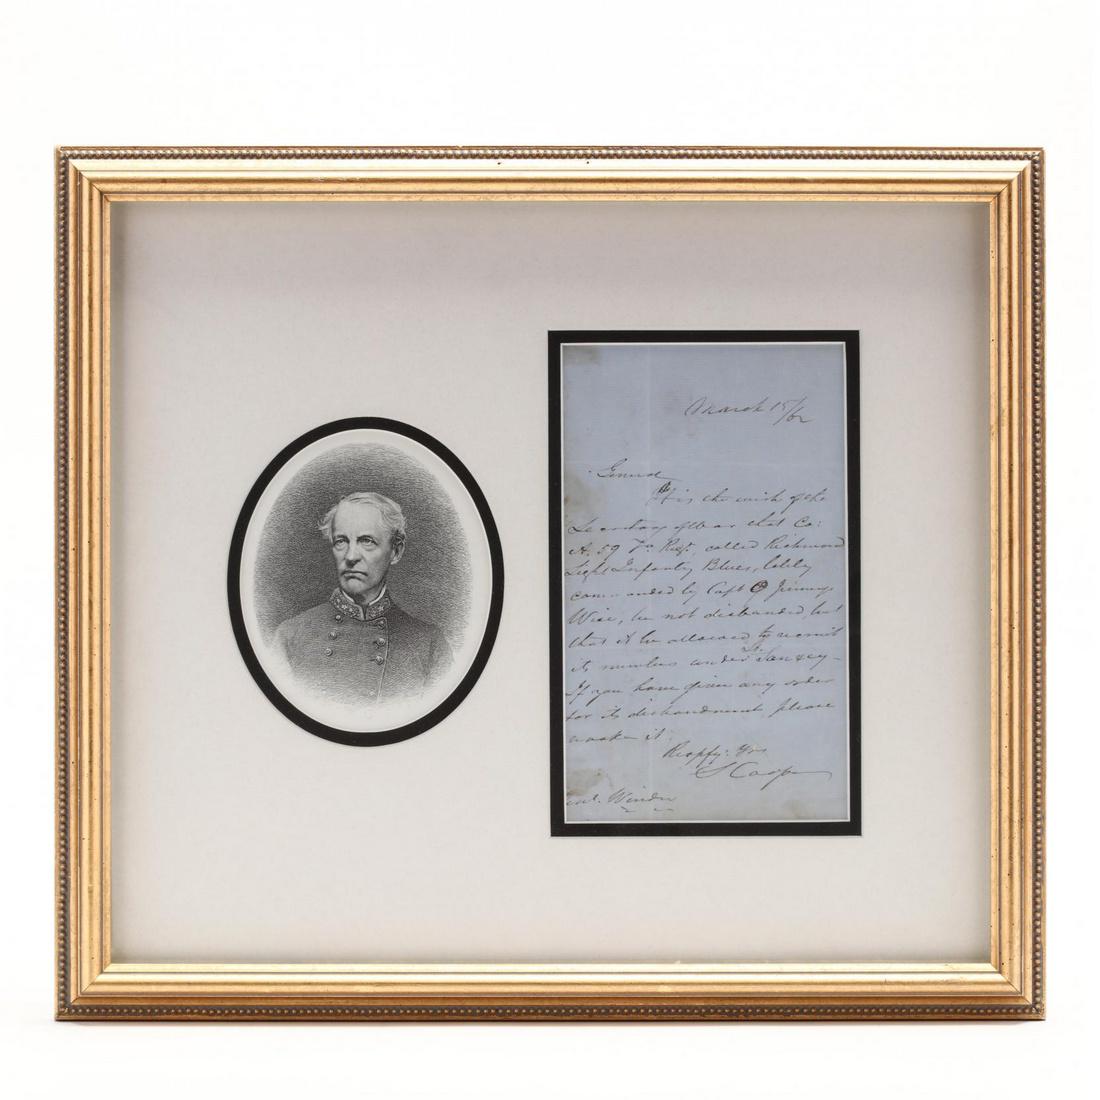 March 15/62
General
It is the wish of the
Secretary of War that Co:
A. 59 Va Regt. called Richmond
Light Infantry Blues, lately
commanded by Capt O Jennings
Wise, be not disbanded, but
that it be allowed to recruit
its numbers under Lt.
If you have given any order
for its disbandment, please
revoke it.
Respfy. Yrs
S Cooper
Genl. Winder